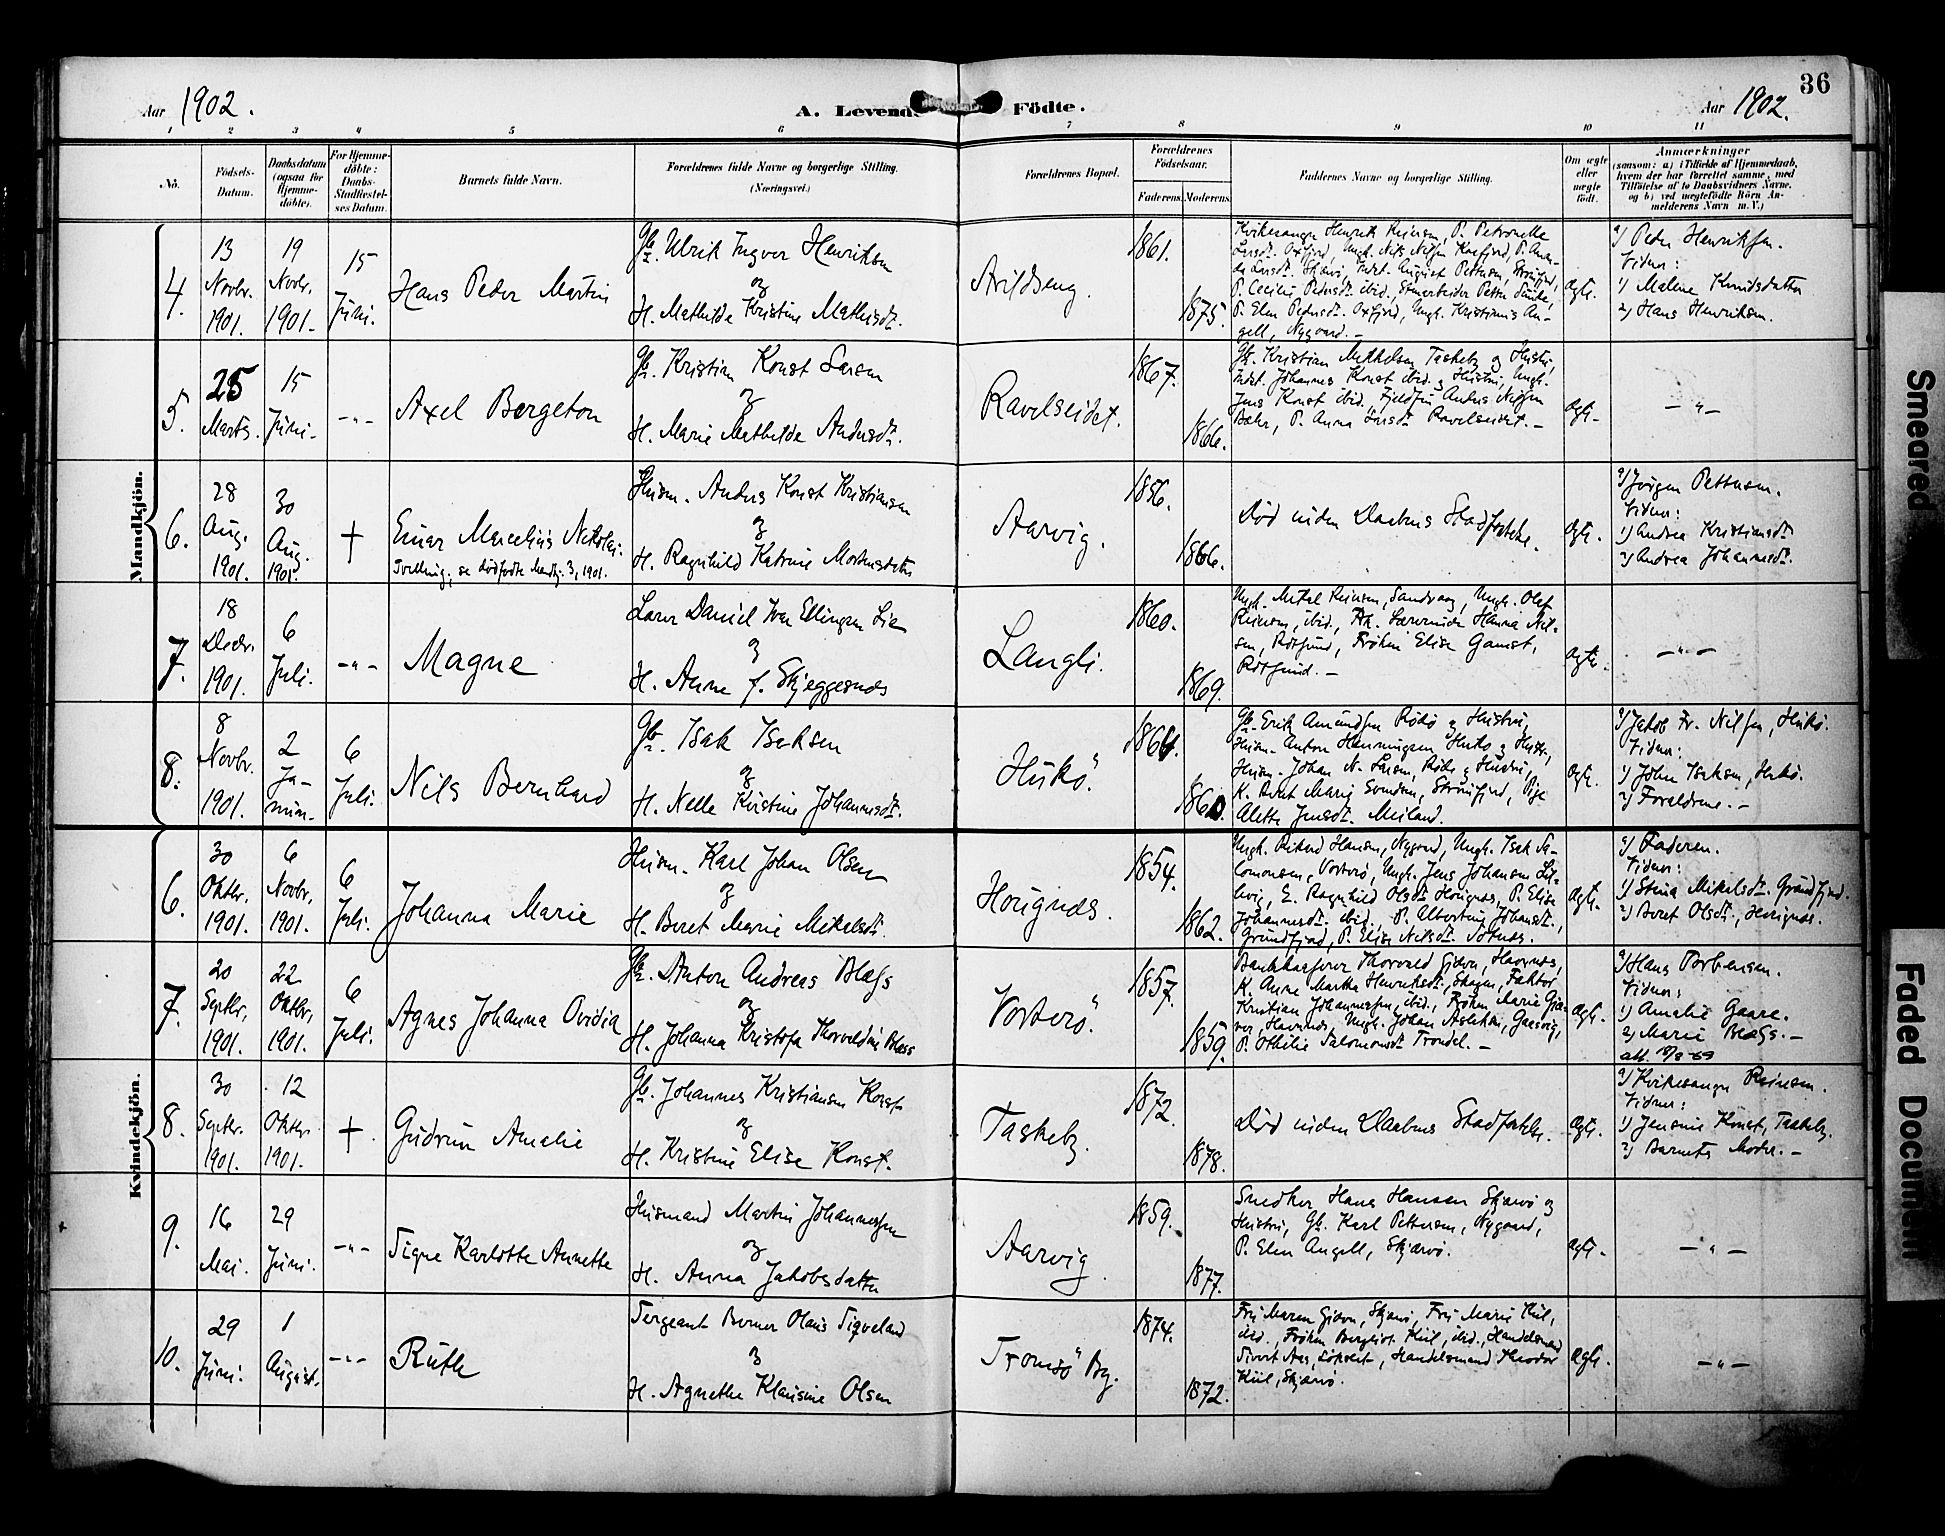 36
Aar 1902.
A. Levende Födte.
Aar 1902.
1 2 3 4 5 6 7 8 9 10 11
No.
Födsels-Datum.
Daabsdatum (ogsaa for Hjemme-döbte).
For Hjemme-döbte: Daabs-Stadfæstel-ses Datum.
Barnets fulde Navn.
Forældrenes fulde Navne og borgerlige Stilling.
(Næringsvei.)
Forældrenes Bopæl.
Forældrenes Födselsaar.
Faderens. Moderens.
Faddernes Navne og borgerlige Stilling.
Om ægte eller uægte födt.
Anmærkninger
(saasom: a) i Tilfælde af Hjemmedaab, hvem der har forrettet samme, med Tilföielse af to Daabsvidners Navne, og b) ved uægtefödte Börn, An-melderens Navn m. V.)
Mandkjön.
4.
13 Novbr. 1901.
19 Novbr. 1901.
15 Juni.
Hans Peder Martin
Gbr. Ulrik Ingvor Henriksen
og
H. Mathilde Kristine Mathisdt.
Arildseng.
1861.
1875.
ægte.
a) Peder Henriksen.
Vidner:
1) Malene Knudsdatter
2) Hans Henriksen.
5.
25 Marts.
15 Juni.
-"-
Axel Bergeton
Gbr. Kristian Konst Larsen
og
H. Marie Mathilde Andersdt.
Ravelseidet.
1867.
1866.
Gbr. Kristian Mikkelsen Taskeby og Hustru,
Indst. Johannes Konst ibid. og Hustru, Ungk.
Jens Konst ibid.
P. Anna Larsdt. Ravelseidet. -
ægte.
- " -
6.
28 Aug. 1901.
30 Aug. 1901.
+
Einar Marcelius Nikolai.
Tvilling, se dødfødte Mandkj. 3, 1901.
Husm. Anders Konst Kristiansen
og
H. Ragnhild Katrine Mortensdatter
Aarvig.
1856.
1866.
Død inden Daabens Stadfæstelse.
ægte.
a) Jørgen Pettersen.
Vidner:
1) Andrea Kristiansdt.
2) Andrea Johannesdt.
7.
18 Decbr. 1901.
6 Juli.
-"-
Magne
Lærer Daniel Iver Ellingsen Lie
og
H. Anne f. Skjeggesnes
Langli.
1860.
1869.
Ungk. Mikal Reiersen, Sandvaag, Ungk. Olaf
Reiersen, ibid., Frk. Lærerinde Hanna Nil-
sen, Rotsund, Frøken Elise Gamst,
Rotsund. -
ægte.
- " -
8.
8 Novbr. 1901.
2 Ja-nuar.
6 Juli.
Nils Bernhard
Gbr. Isak Isaksen
og
H. Nelle Kristine Johannesdt.
Hukø.
1864.
1860.
Gbr. Erik Amundsen Rökö og Hustru,
Husm. Anton Henningsen Hukö og Hustr.,
Husm. Johan N. Larsen, og Hustru,
Alette Jensdt. Meiland.
ægte.
a) Jakob Fr. Nilsen, Hukø.
Vidner:
1) John Isaksen, Hukø.
2) Forældrene. -
Kvindekjön.
6.
30 Oktbr. 1901.
6 Novbr. 1901.
6 Juli.
Johanna Marie
Husm. Karl Johan Olsen
og
H. Beret Marie Mikalsdt.
Hougnæs.
1854.
1862.
Ungk. Rikard Hansen, Nygaard, Ungk. Isak Sa-
lomonsen, Vorterø, Ungk. Jens Johansen
E. Ragnhild Olsdt. Hougnæs, P. Elise
Johannesdt. ibid., P. Albertine Johansdt.,
Grundfjord, P. Elise Nilsdt.
ægte.
a) Faderen.
Vidner:
1) Stina Mikalsdt. Grundfjord.
2) Beret Olsdt., Hougnæs.
7.
20 Septbr. 1901.
22 Oktbr. 1901.
6 Juli.
Agnes Johanna Ovidia
Gbr. Anton Andreas Blæss
og
H. Johanna Kristofa Thorvaldine Blæss
Vorterø.
1857.
1859.
Bankkasserer Thorvald Giæver, Havnnæs,
K. Anne Martha Henriksdt., Skagen, Faktor
Kristian Johannessen, ibid., Frøken Marie Giæ-
ver, Havnnæs, Ungk. Johan
P. Othilie Salomonsdt. -
ægte.
a) Hans Torbensen.
Vidner:
1) Amalie Gaare.
2) Marie Blæss. -
att. 18/3-69
8.
30 Septbr. 1901.
12 Oktbr. 1901.
+
Gudrun Amalie
Gbr. Johannes Kristiansen Konst
og
H. Kristine Elise Konst.
Taskeby.
1872.
1878.
Død inden Daabens Stadfæstelse.
ægte.
a) Kirkesanger Reiersen.
Vidner:
1) Jensine Konst, Taskeby.
2) Barnets Moder. -
9.
16 Mai.
29 Juni.
-"-
Signe Karlotte Annette
Husmand Martin Johannessen
og
H. Anna Jakobsdatter
Aarvig.
1859.
1877.
Snedker Hans Hansen Skjærvö og
Hustru, Gbr. Karl Pettersen, Nygaard,
P. Elen Angell, Skjærvø.
ægte.
- " -
10.
29 Juni.
1 August.
-"-
Ruth
Sergeant Berner Olaus Sigveland
og
H. Agnethe Klausine Olsen
Tromsö By.
1874.
1872.
Fru Maren Giæver, Skjærvö, Fru Marie Kiil,
ibid., Frøken Bergliot Kiil, ibid., Handelsmand
Sivert Aas, Handelsmand Theodor
Kiil, Skjærvø.
ægte.
- " -
Smeared
Faded Document